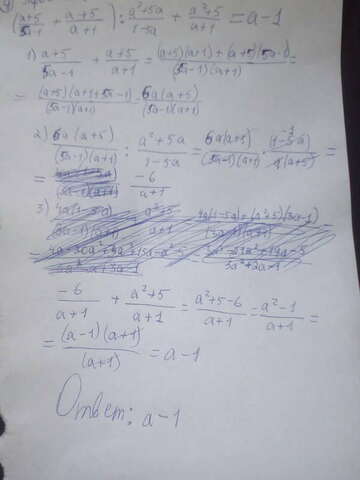 (a+5/5a-1 + a+5/a+1) : a²+5a/1-5a + a²+5/a+1 = a-1
1) a+5/5a-1 + a+5/a+1 = (a+5)(a+1)+(a+5)(5a-1)/(5a-1)(a+1) =
= (a+5)(a+1+5a-1)/(5a-1)(a+1) = 6a(a+5)/(5a-1)(a+1)
2) 6a(a+5)/(5a-1)(a+1) : a²+5a/1-5a = 6a(a+5)/(5a-1)(a+1) · (1-5a)/a(a+5) =
= -6/a+1
3)
-6/a+1 + a²+5/a+1 = a²+5-6/a+1 = a²-1/a+1 =
= (a-1)(a+1)/(a+1) = a-1
Ответ: a-1